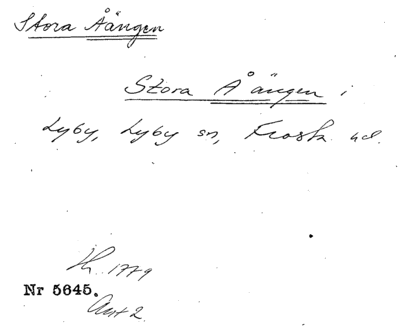 Stora Åängen
Stora Åängen i
Lyby, Lyby sn, Frosta hd.
Nr 5645.